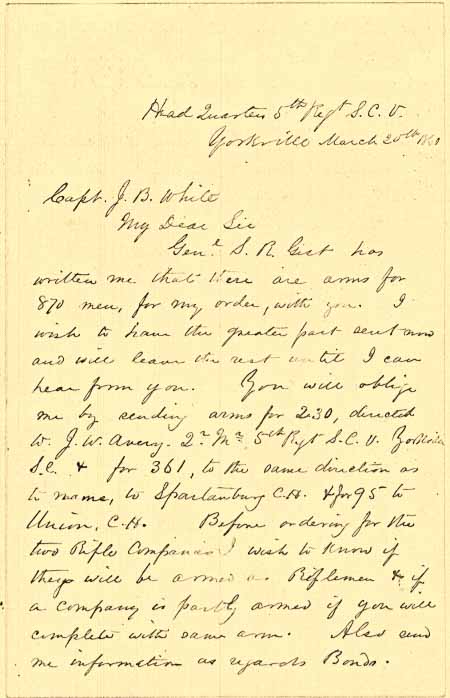 Head Quarters 5th Regt S. C. V.
Yorkville March 20th 1861
Capt. J. B. White
My Dear Sir
Genl. S. R. Gist has
written me that there are arms for
870 men, for my order, with you. I
wish to have the greater part sent now
and will leave the rest until I can
hear from you. You will oblige
me by sending arms for 230, directed
to J. W. Avery. 2r. Mr. 5th Regt S. C. V. Yorkville
S.C. & for 361, to the same direction as
to name, to Spartanburg C.H. & for 95 to
Union, C.H. Before ordering for the
two Rifle Companies I wish to know if
they will be armed as Riflemen & if
a company is partly armed if you will
complete with same arm. Also send
me information as regards Bonds.